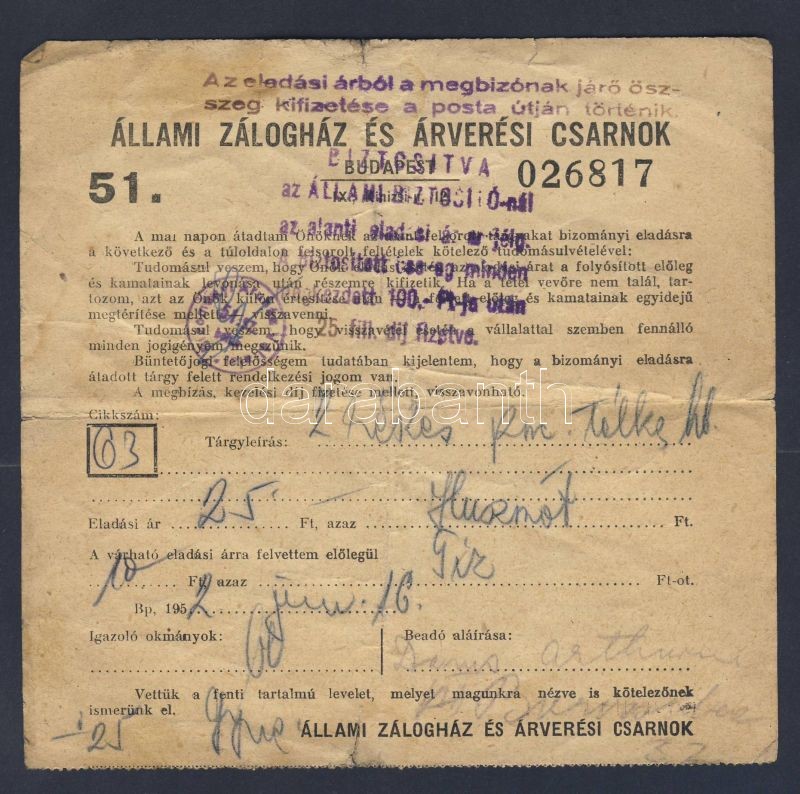 Az eladási árból a megbizónak járó ösz-
szeg kifizetése a posta útján történik.
ÁLLAMI ZÁLOGHÁZ ÉS ÁRVERÉSI CSARNOK
BIZTOSITVA
BUDAPEST
026817
51.
az ÁLLAMI BIZTOSITÓ-nál
az alanti eladási ár
A mai napon átadtam Önöknek az bizományi eladásra
a következő és a túloldalon felsorolt feltételek kötelező tudomásulvételével:
Tudomásul veszem, hogy Önök az árat a folyósított előleg
és kamatainak levonása után részemre kifizetik. Ha a tétel vevőre nem talál, tar-
tozom, azt az Önök külön értesítése után a előleg és kamatainak egyidejű
megtérítése mellett visszavenni.
minden
megkezdett 100.- Ft-ja után
25 fill. díj fizetve.
Tudomásul veszem, hogy visszavétel esetén a vállalattal szemben fennálló
minden jogigényem megszűnik.
Büntetőjogi felelősségem tudatában kijelentem, hogy a bizományi eladásra
átadott tárgy felett rendelkezési jogom van.
A megbízás, kezelési díj fizetése mellett, visszavonható.
darabanth
Cikkszám:
63
Tárgyleírás: 2 kékes
Eladási ár 25.- Ft, azaz Huszonöt Ft.
A várható eladási árra felvettem előlegül
10 Ft, azaz Tíz Ft-ot.
Bp, 1952 jun. 16.
Igazoló okmányok:
Beadó aláírása:
Vettük a fenti tartalmú levelet, melyet magunkra nézve is kötelezőnek
ismerünk el.
ÁLLAMI ZÁLOGHÁZ ÉS ÁRVERÉSI CSARNOK